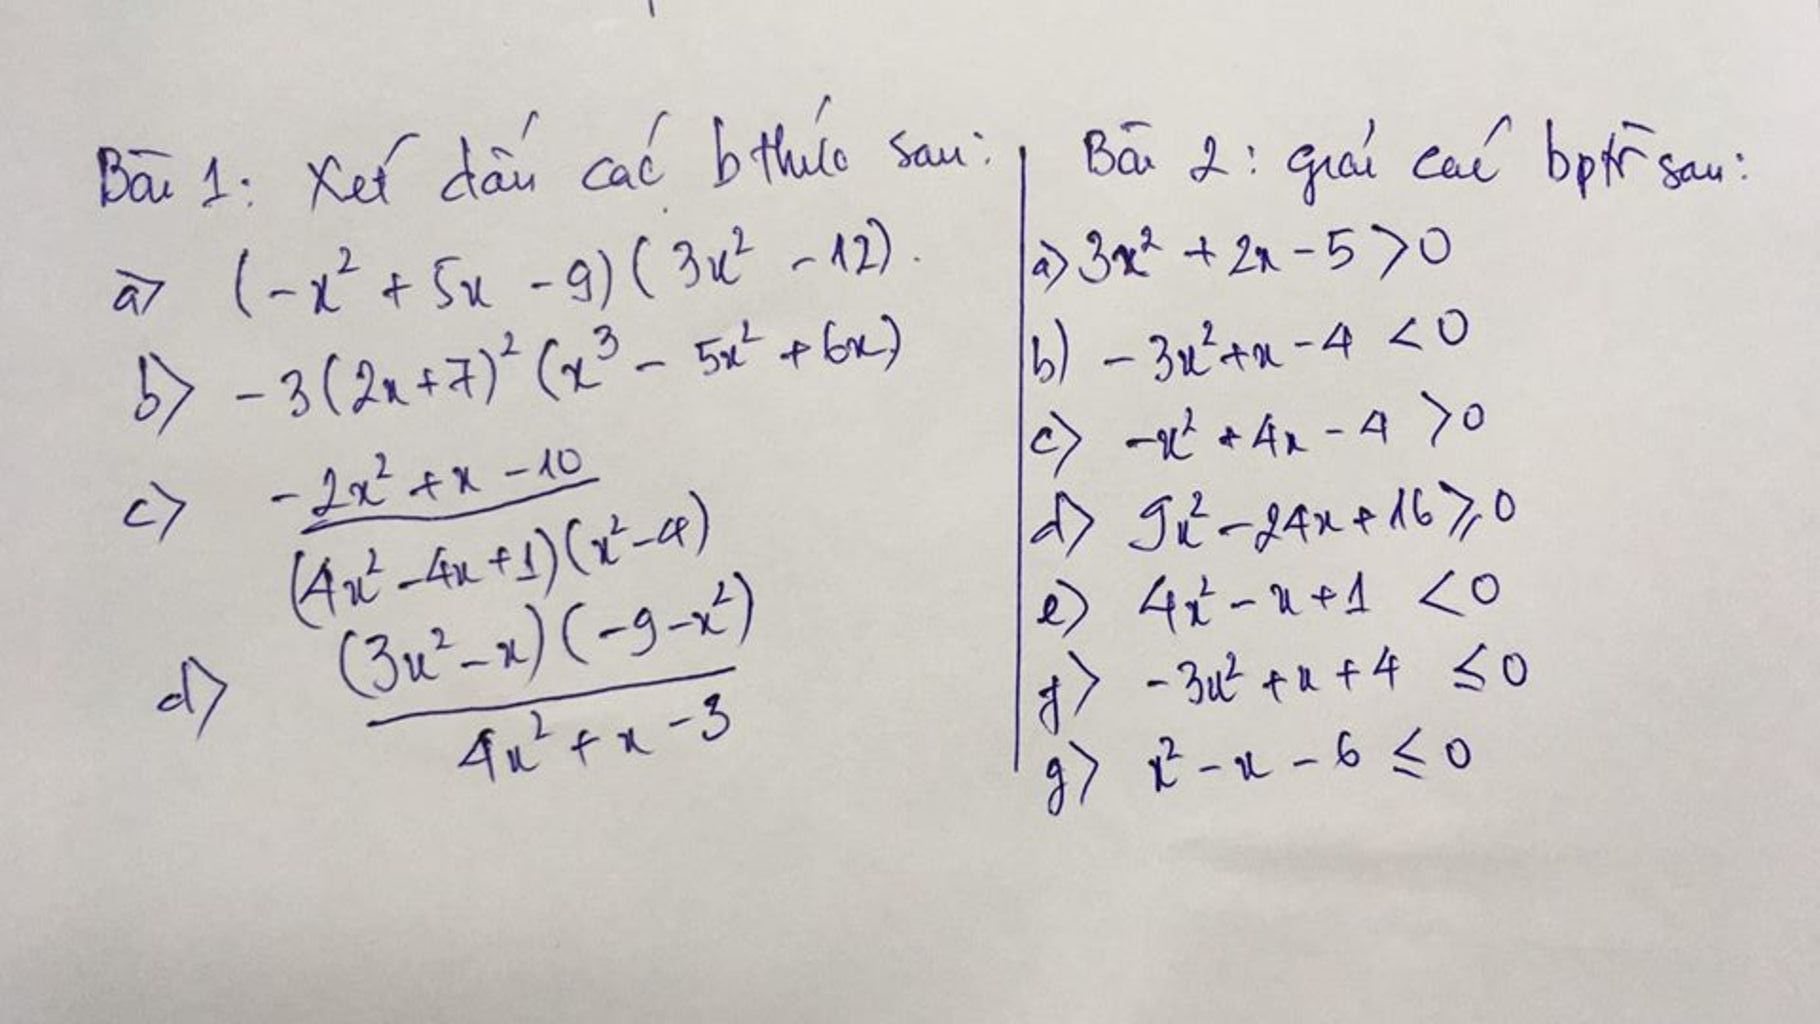 Bài 1: Xét dấu các bthức sau:
a) (-x² + 5x - 9)(3x² - 12).
b) -3(2x+7)²(x³ - 5x² + 6x)
c) -2x² + x - 10
(4x² - 4x + 1)(x² - 4)
d) (3x² - x)(-9 - x²)
4x² + x - 3
Bài 2: giải các bptr sau:
a) 3x² + 2x - 5 > 0
b) -3x² + x - 4 < 0
c) -x² + 4x - 4 > 0
d) 9x² - 24x + 16 ≥ 0
e) 4x² - x + 1 < 0
f) -3x² + x + 4 ≤ 0
g) x² - x - 6 ≤ 0